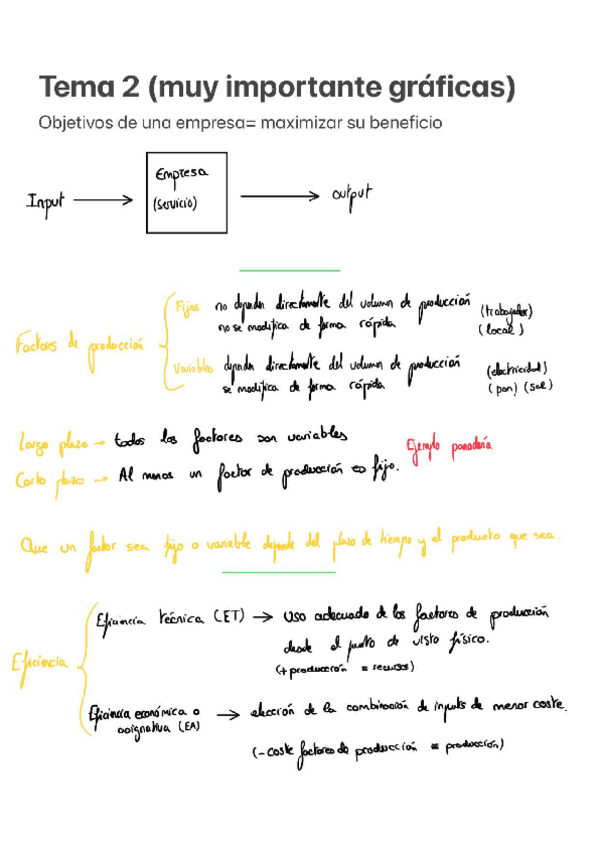 Tema 2 (muy importante gráficas)
Objetivos de una empresa= maximizar su beneficio
Input
Empresa
(servicio)
output
Factores de producción
Fijos
no dependen directamente del volumen de producción
no se modifica de forma rápida
(trabajador)
(local)
Variables
dependen directamente del volumen de producción
se modifica de forma rápida
(electricidad)
(pan) (sal)
Largo plazo → todos los factores son variables
Corto plazo → Al menos un factor de producción es fijo.
Ejemplo panadería
Que un factor sea fijo o variable depende del plazo de tiempo y el producto que sea.
Eficiencia
Eficiencia técnica (ET) → uso adecuado de los factores de producción
desde el punto de vista físico.
(+ producción = recursos)
Eficiencia económica o
asignativa (EA)
→ elección de la combinación de inputs de menor coste.
(- coste factores de producción = producción)